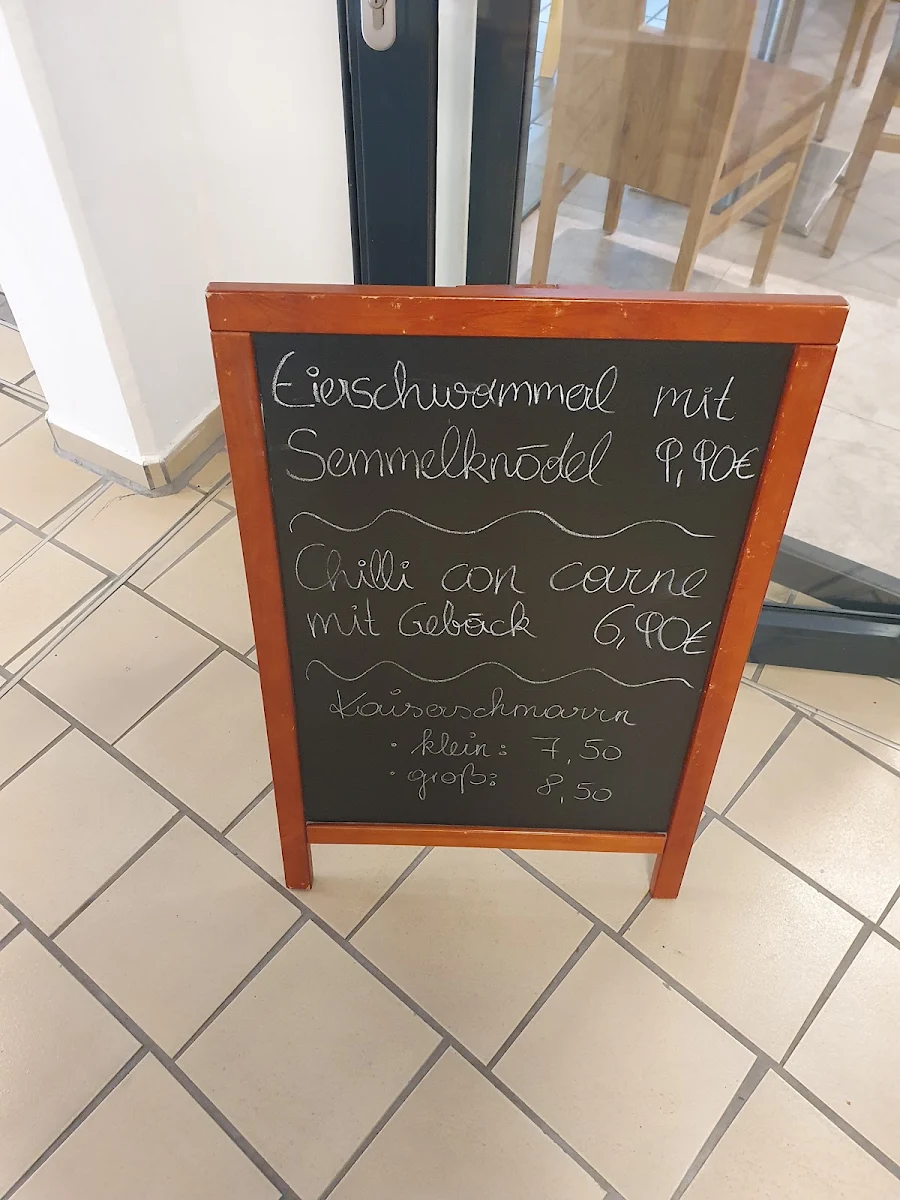 Eierschwammerl mit
Semmelknödel 9,90€
Chilli con carne
mit Gebäck 6,90€
Kaiserschmarrn
· klein: 7,50
· groß: 8,50